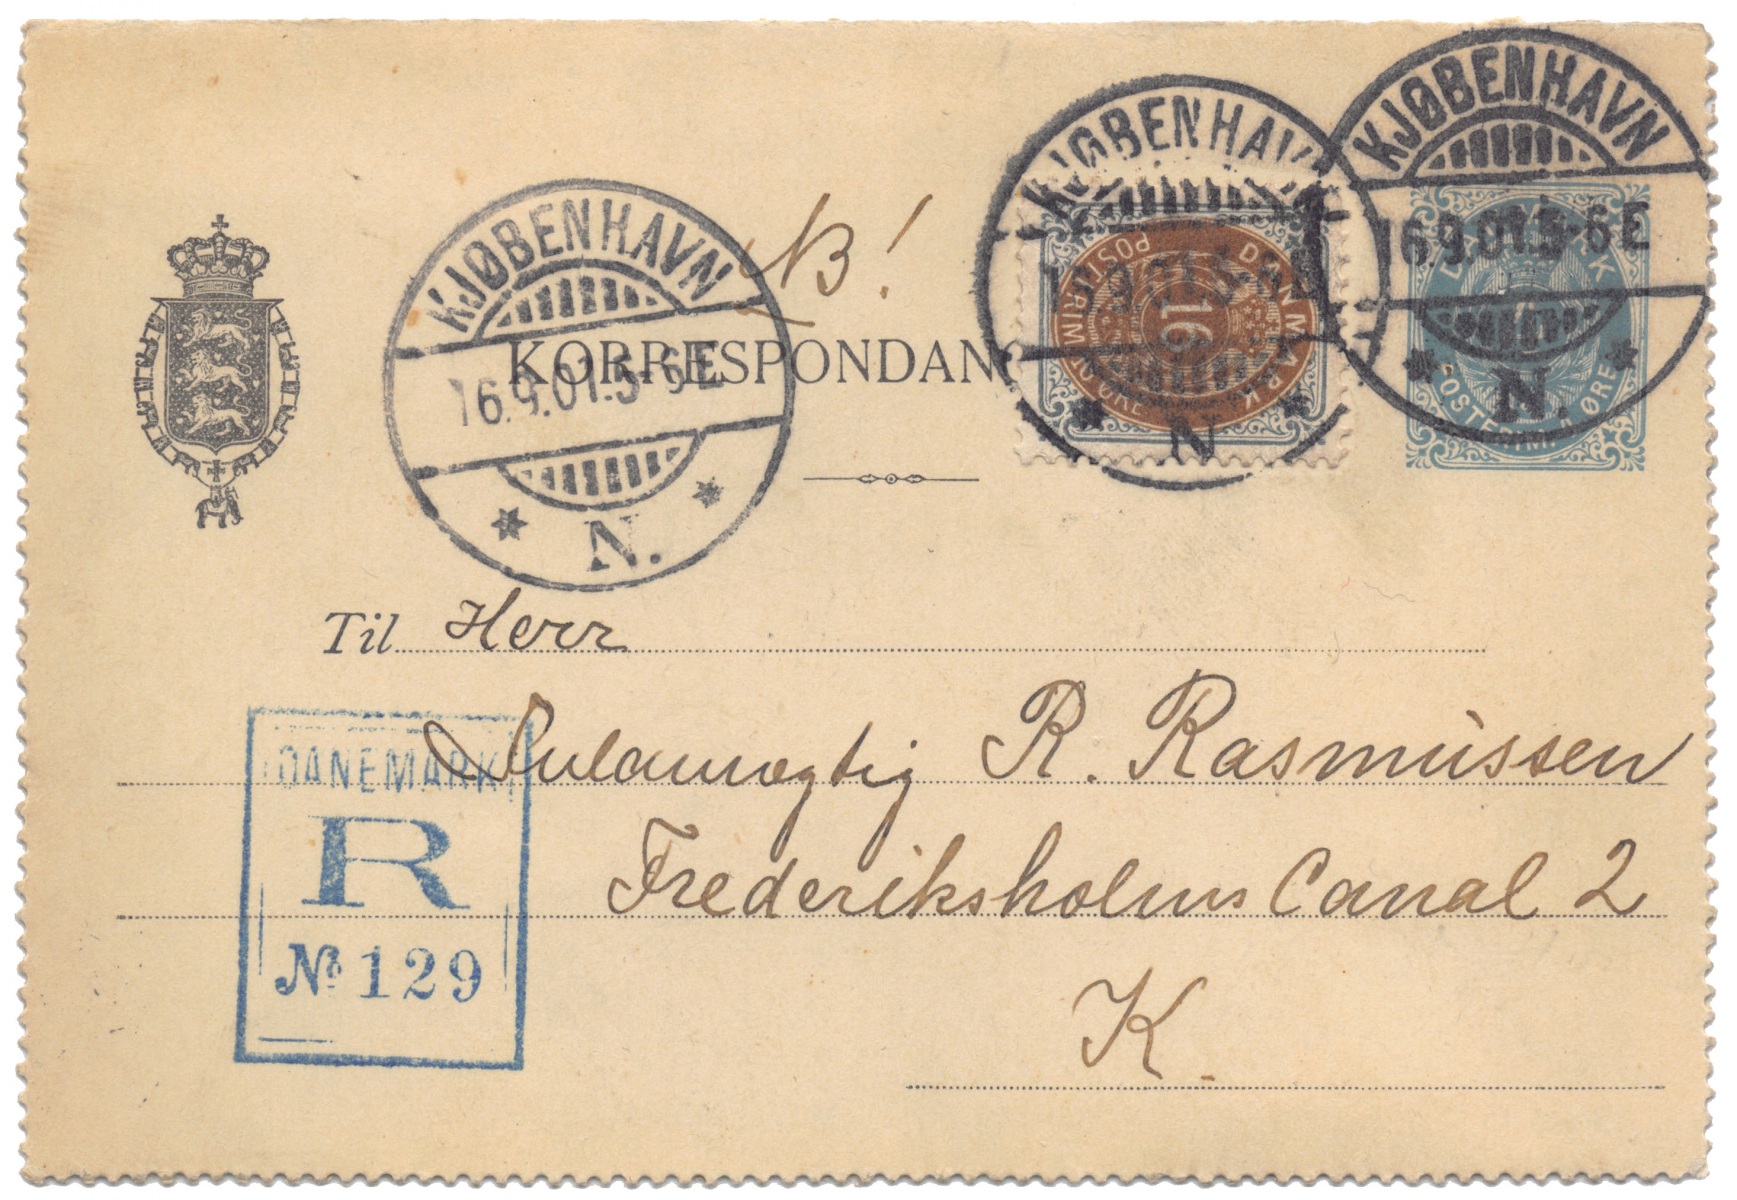 KJØBENHAVN
16.9.01.5-6E
N.
KJØBENHAVN
N
KJØBENHAVN
16.9.01.5-6E
N.
NB!
KORRESPONDAN
DANMARK
POSTFRIM
16
ØRE
DANMARK
POSTFRIM. 4 ØRE
Til Herr
R. Rasmussen
Frederiksholms Canal 2
K.
DANEMARK
R
No 129